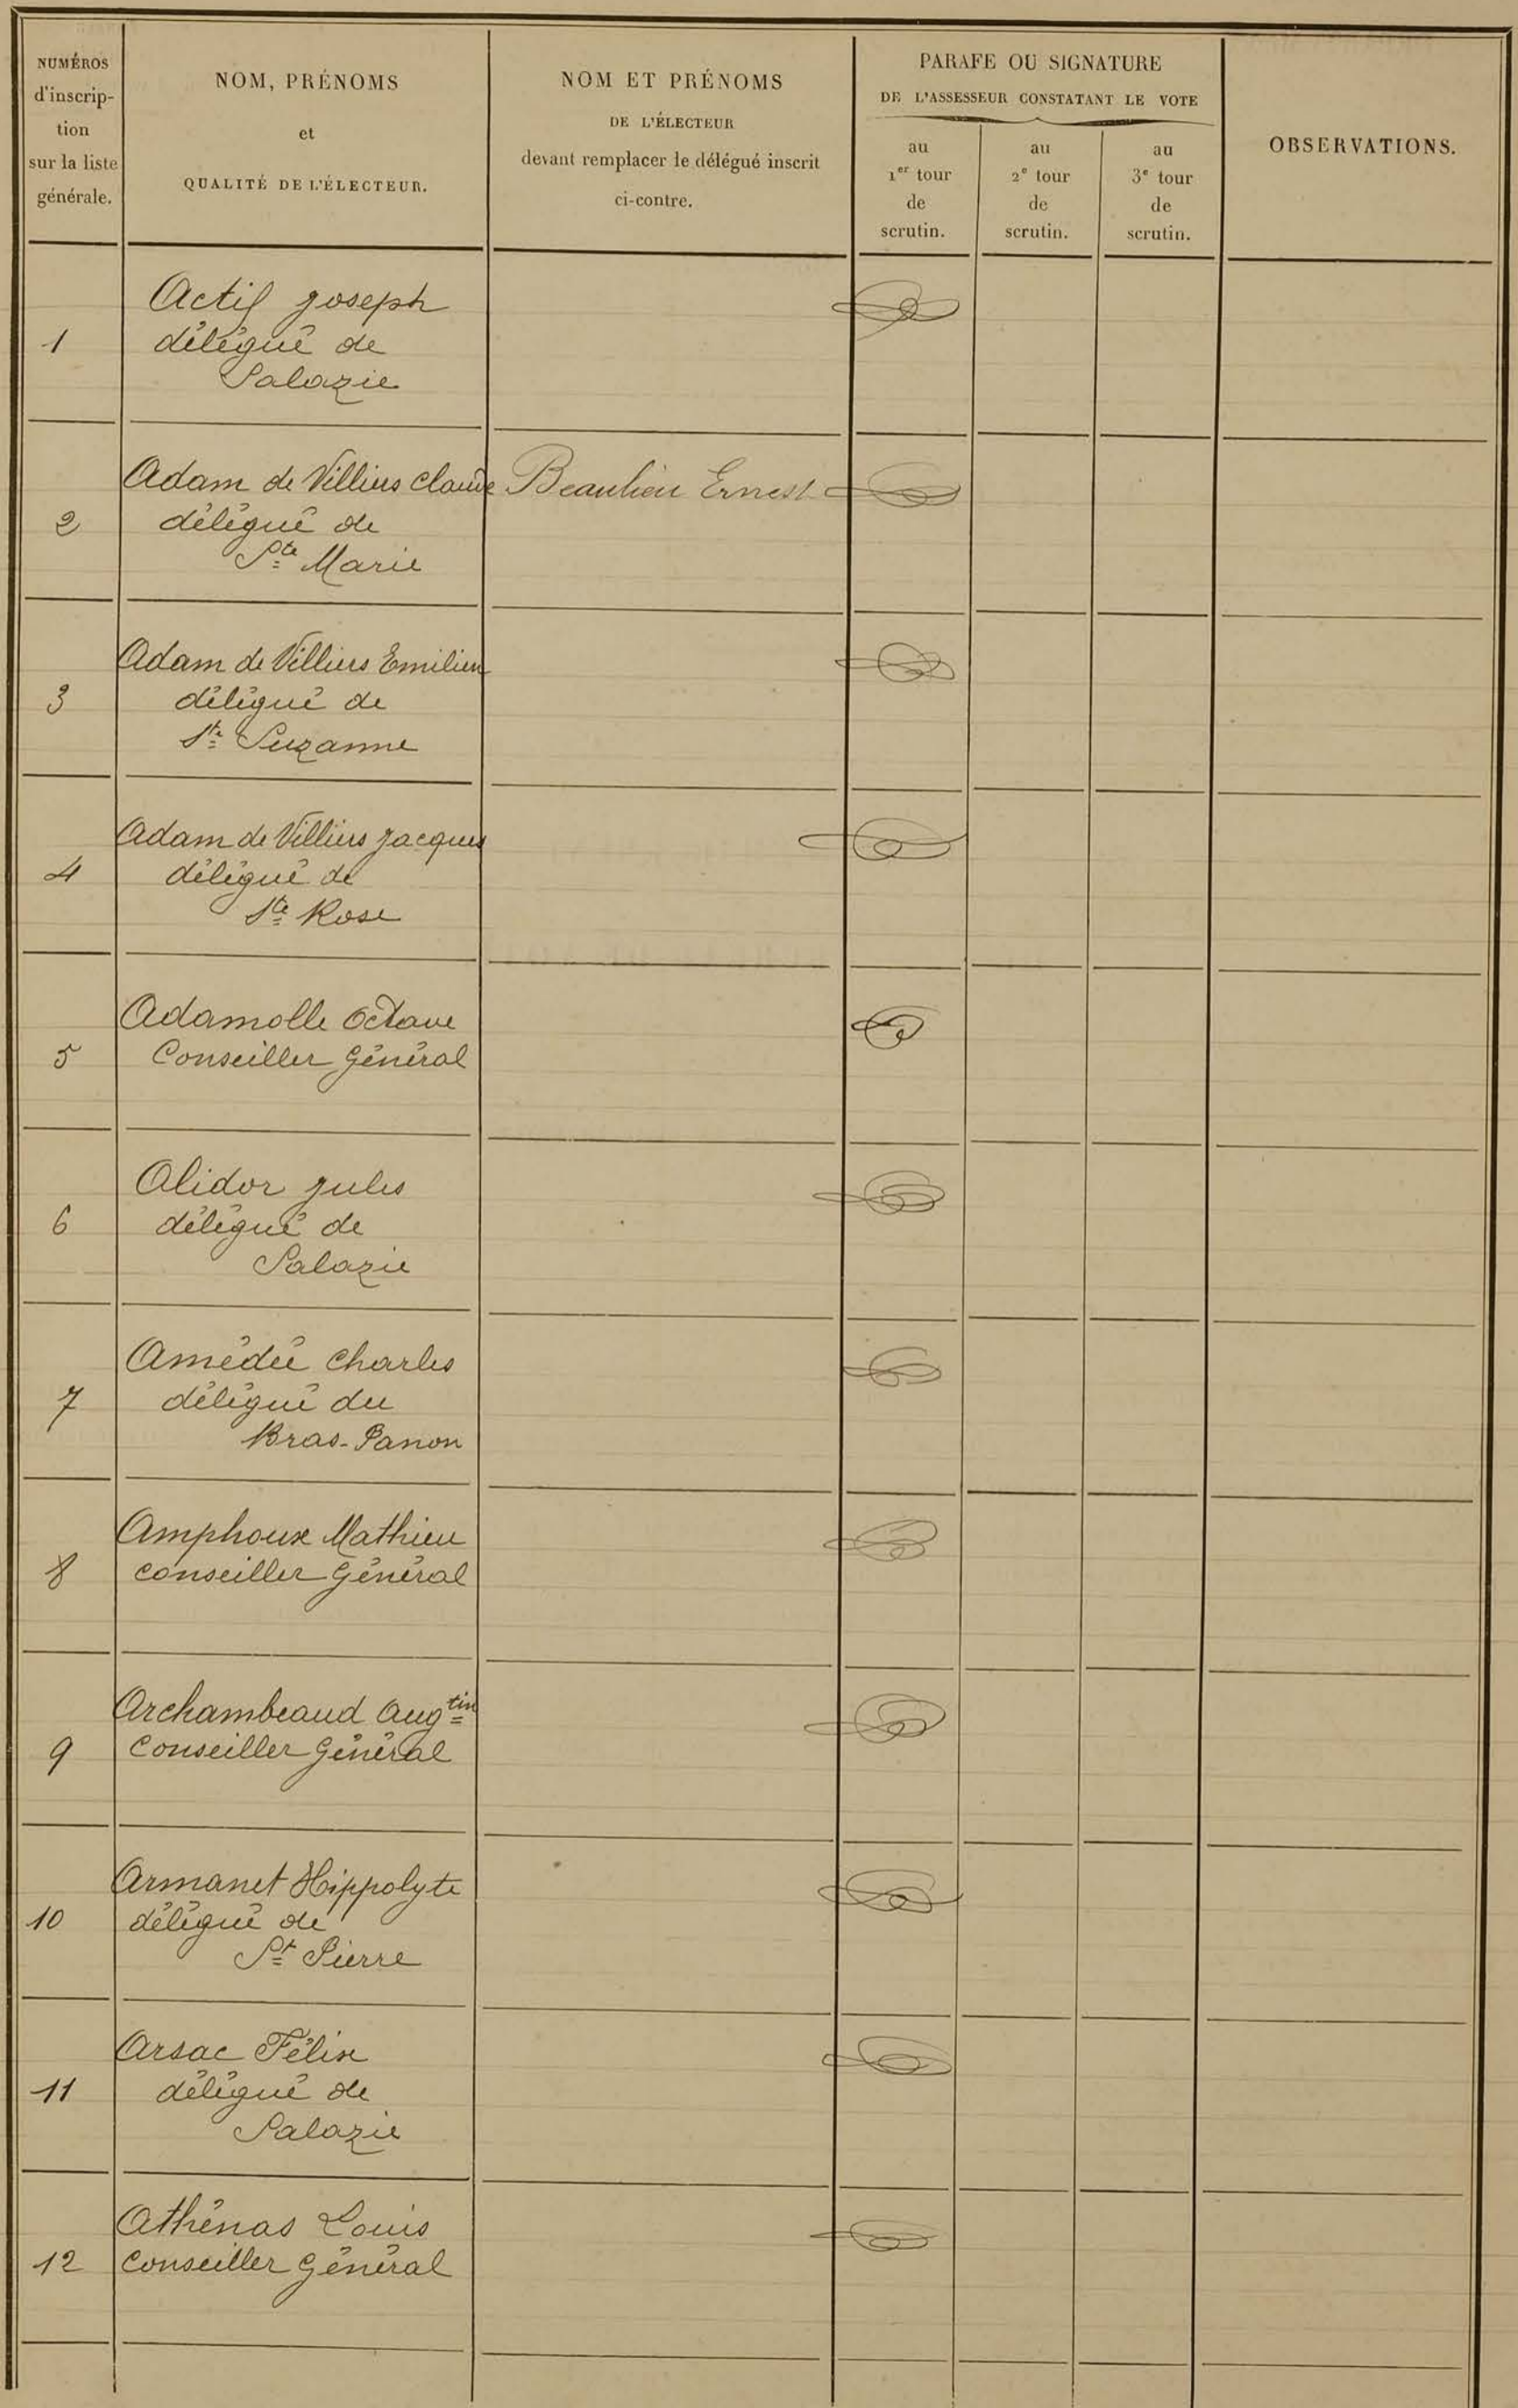 NUMÉROS
d'inscrip-
tion
sur la liste
générale.
NOM, PRÉNOMS
et
QUALITÉ DE L'ÉLECTEUR.
NOM ET PRÉNOMS
DE L'ÉLECTEUR
devant remplacer le délégué inscrit
ci-contre.
PARAFE OU SIGNATURE
DE L'ASSESSEUR CONSTATANT LE VOTE
au
1er tour
de
scrutin.
au
2e tour
de
scrutin.
au
3e tour
de
scrutin.
OBSERVATIONS.
Actif Joseph
1 délégué de
Salazie
Adam de Villiers Claude Beaulieu Ernest
2 délégué de
Ste Marie
Adam de Villiers Emilien
3 délégué de
Ste Suzanne
Adam de Villiers Jacques
4 délégué de
Ste Rose
Adamolle Octave
5 Conseiller Général
Alidor Jules
6 délégué de
Salazie
Amédée Charles
7 délégué du
Bras-Panon
Amphoux Mathieu
8 Conseiller Général
Archambeaud Augtin
9 Conseiller Général
Armanet Hippolyte
10 délégué de
St Pierre
Arsac Félix
11 délégué de
Salazie
Athénas Louis
12 Conseiller Général